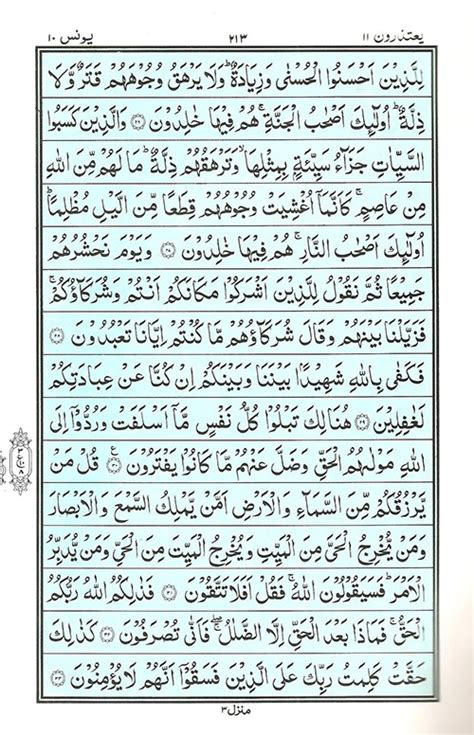 یعتذرون ۱۱ ۲۱۳ یونس ۱۰
لِلَّذِيْنَ اَحْسَنُوا الْحُسْنٰى وَزِيَادَةٌ ؕ وَلَا يَرْهَقُ وُجُوْهَهُمْ قَتَرٌ وَّلَا
ذِلَّةٌ ؕ اُولٰٓئِكَ اَصْحٰبُ الْجَنَّةِ ۚ هُمْ فِيْهَا خٰلِدُوْنَ ۝۲۶ وَالَّذِيْنَ كَسَبُوا
السَّيِّاٰتِ جَزَآءُ سَيِّئَةٍۭ بِمِثْلِهَا ۙ وَتَرْهَقُهُمْ ذِلَّةٌ ؕ مَا لَهُمْ مِّنَ اللّٰهِ
مِنْ عَاصِمٍ ۚ كَاَنَّمَاۤ اُغْشِيَتْ وُجُوْهُهُمْ قِطَعًا مِّنَ الَّيْلِ مُظْلِمًا ؕ
اُولٰٓئِكَ اَصْحٰبُ النَّارِ ۚ هُمْ فِيْهَا خٰلِدُوْنَ ۝۲۷ وَيَوْمَ نَحْشُرُهُمْ
جَمِيْعًا ثُمَّ نَقُوْلُ لِلَّذِيْنَ اَشْرَكُوْا مَكَانَكُمْ اَنْتُمْ وَشُرَكَآؤُكُمْ ۚ
فَزَيَّلْنَا بَيْنَهُمْ وَقَالَ شُرَكَآؤُهُمْ مَّا كُنْتُمْ اِيَّانَا تَعْبُدُوْنَ ۝۲۸
فَكَفٰى بِاللّٰهِ شَهِيْدًۢا بَيْنَنَا وَبَيْنَكُمْ اِنْ كُنَّا عَنْ عِبَادَتِكُمْ
لَغٰفِلِيْنَ ۝۲۹ هُنَالِكَ تَبْلُوْا كُلُّ نَفْسٍ مَّاۤ اَسْلَفَتْ وَرُدُّوْۤا اِلَى
اللّٰهِ مَوْلٰىهُمُ الْحَقِّ وَضَلَّ عَنْهُمْ مَّا كَانُوْا يَفْتَرُوْنَ ۝۳۰ قُلْ مَنْ
يَّرْزُقُكُمْ مِّنَ السَّمَآءِ وَالْاَرْضِ اَمَّنْ يَّمْلِكُ السَّمْعَ وَالْاَبْصَارَ
وَمَنْ يُّخْرِجُ الْحَيَّ مِنَ الْمَيِّتِ وَيُخْرِجُ الْمَيِّتَ مِنَ الْحَيِّ وَمَنْ يُّدَبِّرُ
الْاَمْرَ ؕ فَسَيَقُوْلُوْنَ اللّٰهُ ۚ فَقُلْ اَفَلَا تَتَّقُوْنَ ۝۳۱ فَذٰلِكُمُ اللّٰهُ رَبُّكُمُ
الْحَقُّ ۚ فَمَاذَا بَعْدَ الْحَقِّ اِلَّا الضَّلٰلُ ۖۚ فَاَنّٰى تُصْرَفُوْنَ ۝۳۲ كَذٰلِكَ
حَقَّتْ كَلِمَتُ رَبِّكَ عَلَى الَّذِيْنَ فَسَقُوْۤا اَنَّهُمْ لَا يُؤْمِنُوْنَ ۝۳۳
منزل ۳